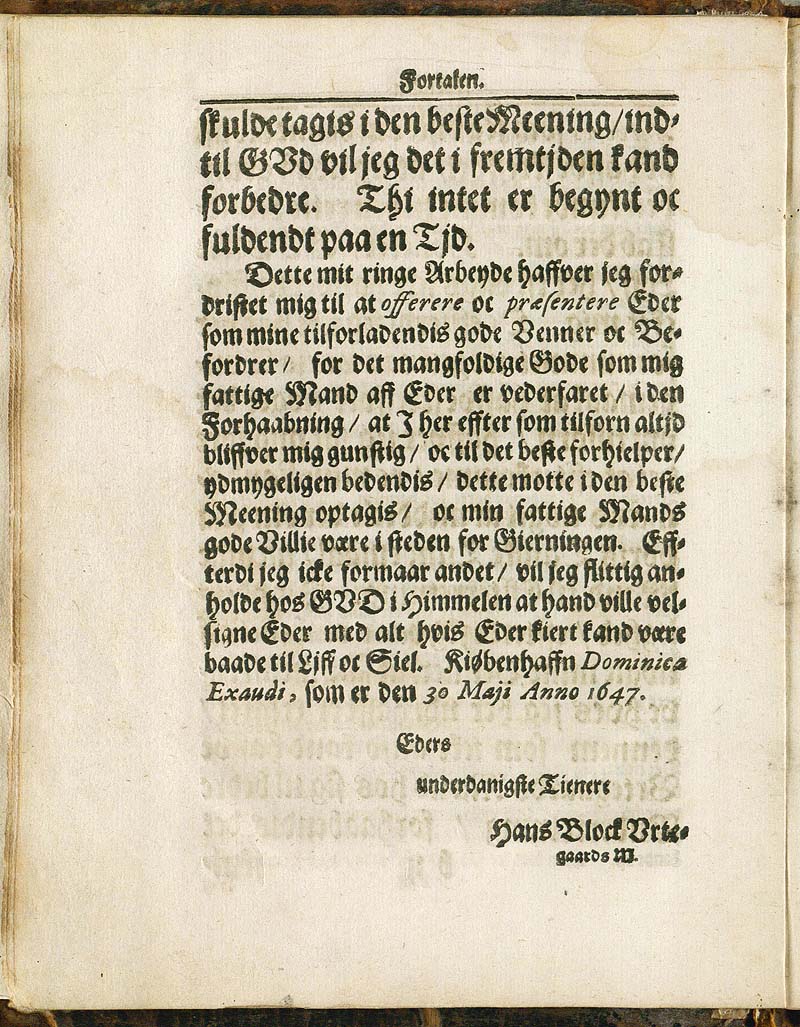 Fortalen.
skulde tagis i den beste Meening/ ind-
til GUd vil jeg det i fremtjden kand
forbedre. Thi intet er begynt oc
fuldendt paa en Tjd.
Dette mit ringe Arbeyde haffver jeg for-
dristet mig til at offerere oc præsentere Eder
som mine tilforladendis gode Venner oc Be-
fordrer/ for det mangfoldige Gode som mig
fattige Mand aff Eder er vederfaret/ i den
Forhaabning/ at I her effter som tilforn altjd
bliffver mig gunstig/ oc til det beste forhielper/
ydmygeligen bedendis/ dette motte i den beste
Meening optagis/ oc min fattige Mands
gode Villie være i steden for Gierningen. Eff-
terdi jeg icke formaar andet/ vil jeg flittig an-
holde hos GUD i Himmelen at hand ville vel-
signe Eder med alt hvis Eder kiert kand være
baade til Ljff oc Siel. Kiøbenhaffn Dominica
Exaudi, som er den 30 Maji Anno 1647.
Eders
underdanigste Tienere
Hans Block Urte-
gaards M.